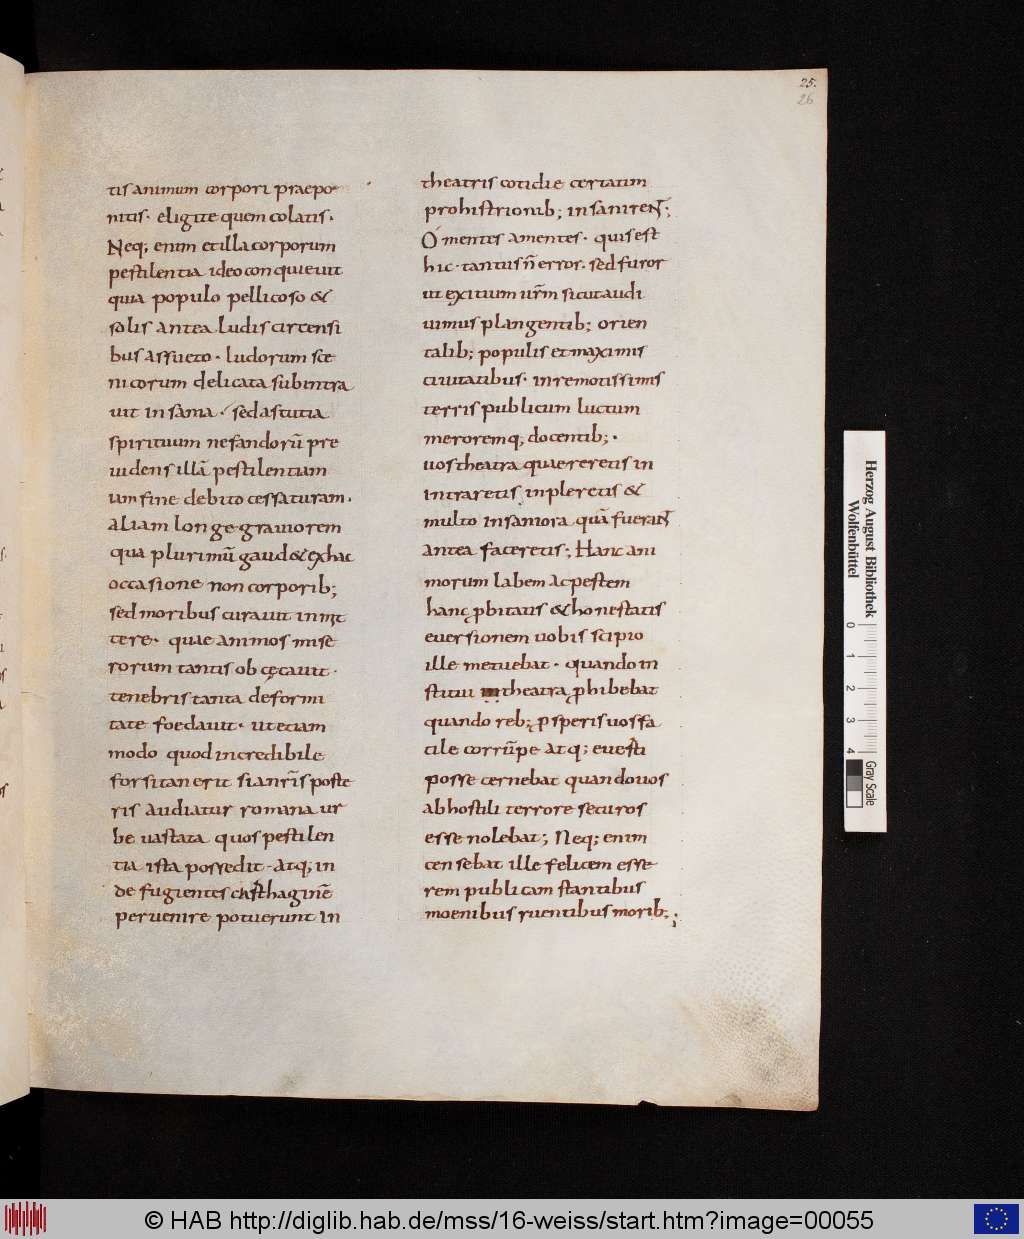 25.
26
tis animum corpori praepo
nitis· eligite quem colatis·
Neq; enim et illa corporum
pestilentia ideo conquieuit
quia populo pellicoso &
solis antea ludis circensi
bus assueto· ludorum sce
nicorum delicata subintra
uit insania· sed astutia
spirituum nefandorū pre
uidens illā pestilentiam
iam fine debito cessaturam·
aliam longe grauiorem
qua plurimū gaud& ex hac
occasione non corporib;
sed moribus curauit inmit
tere· quae animos mise
rorum tantis obcęcauit·
tenebris tanta deformi
tate foedauit· ut etiam
modo quod incredibile
forsitan erit si a nrīs poste
ris audiatur romana ur
be uastata quos pestilen
tia ista possedit· atq; in
de fugientes carthaginē
peruenire potuerunt in
theatris cotidie certatim
pro histrionib; insanirent;
O mentes amentes· quis est
hic· tantus n̄ error· sed furor
ut exitium ur̄m sicut audi
uimus plangentib; orien
talib; populis et maximis
ciuitatibus· in remotissimis
terris publicum luctum
meroremq; docentib;·
uos theatra quaereretis in
intraretis inpleretis &
multo insaniora quā fuerant
antea faceretis; Hanc ani
morum labem ac pestem
hanc ꝓbitatis & honestatis
euersionem uobis scipio
ille metuebat· quando in
stitui theatra ꝓhibebat
quando reb; ꝓsperis uos fa
cile corrūpe atq; euerti
posse cernebat quando uos
ab hostili terrore securos
esse nolebat; Neq; enim
censebat ille felicem esse
rem publicam stantibus
moenibus ruentibus morib;;
Herzog August Bibliothek
Wolfenbüttel
0 1 2 3 4
Gray Scale
© HAB http://diglib.hab.de/mss/16-weiss/start.htm?image=00055